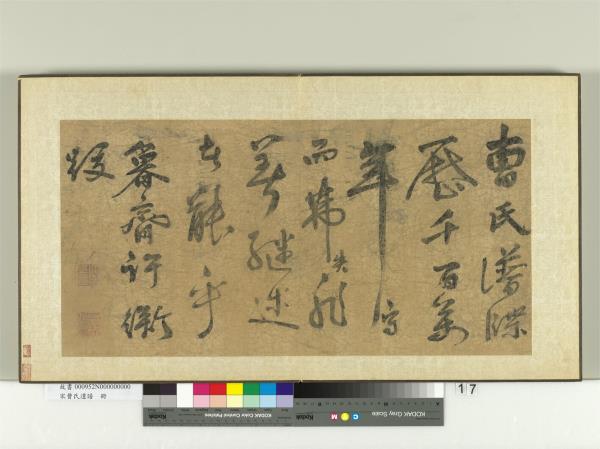 曹氏譜牒
歷千百萬
年寫
而弗失非
善繼述
者能乎
審齋許衡
題
故書 000952N000000000
宋曹氏遺譜 冊
KODAK Color Control Patches
KODAK Gray Scale
C M Y
17